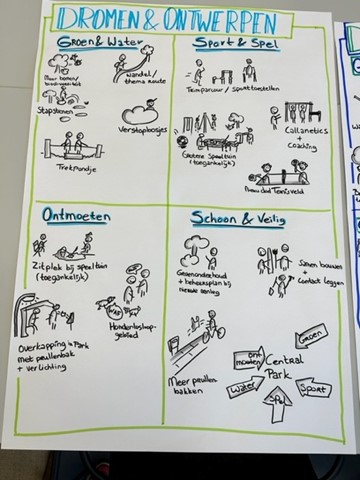 DROMEN & ONTWERPEN
Groen & Water
Meer bomen/
Wandel/
thema route
Stapstenen
Verstopbosjes
Trekpondje
Sport & Spel
Calisthenics
+
Coaching
Grotere Speeltuin
(toegankelijk)
Tennisveld
Ontmoeten
Zitplek bij speeltuin
(toegankelijk)
WAF
Hondenlosloop-
gebied
Overkapping in Park
met peullenbak
+ verlichting
Schoon & Veilig
Groenonderhoud
+ beheersplan bij
nieuwe aanleg
Samen bouwen
+
Contact leggen
Meer peullen
bakken
Groen
Ont
moeten
Central
Park
Water
Spel
Sport